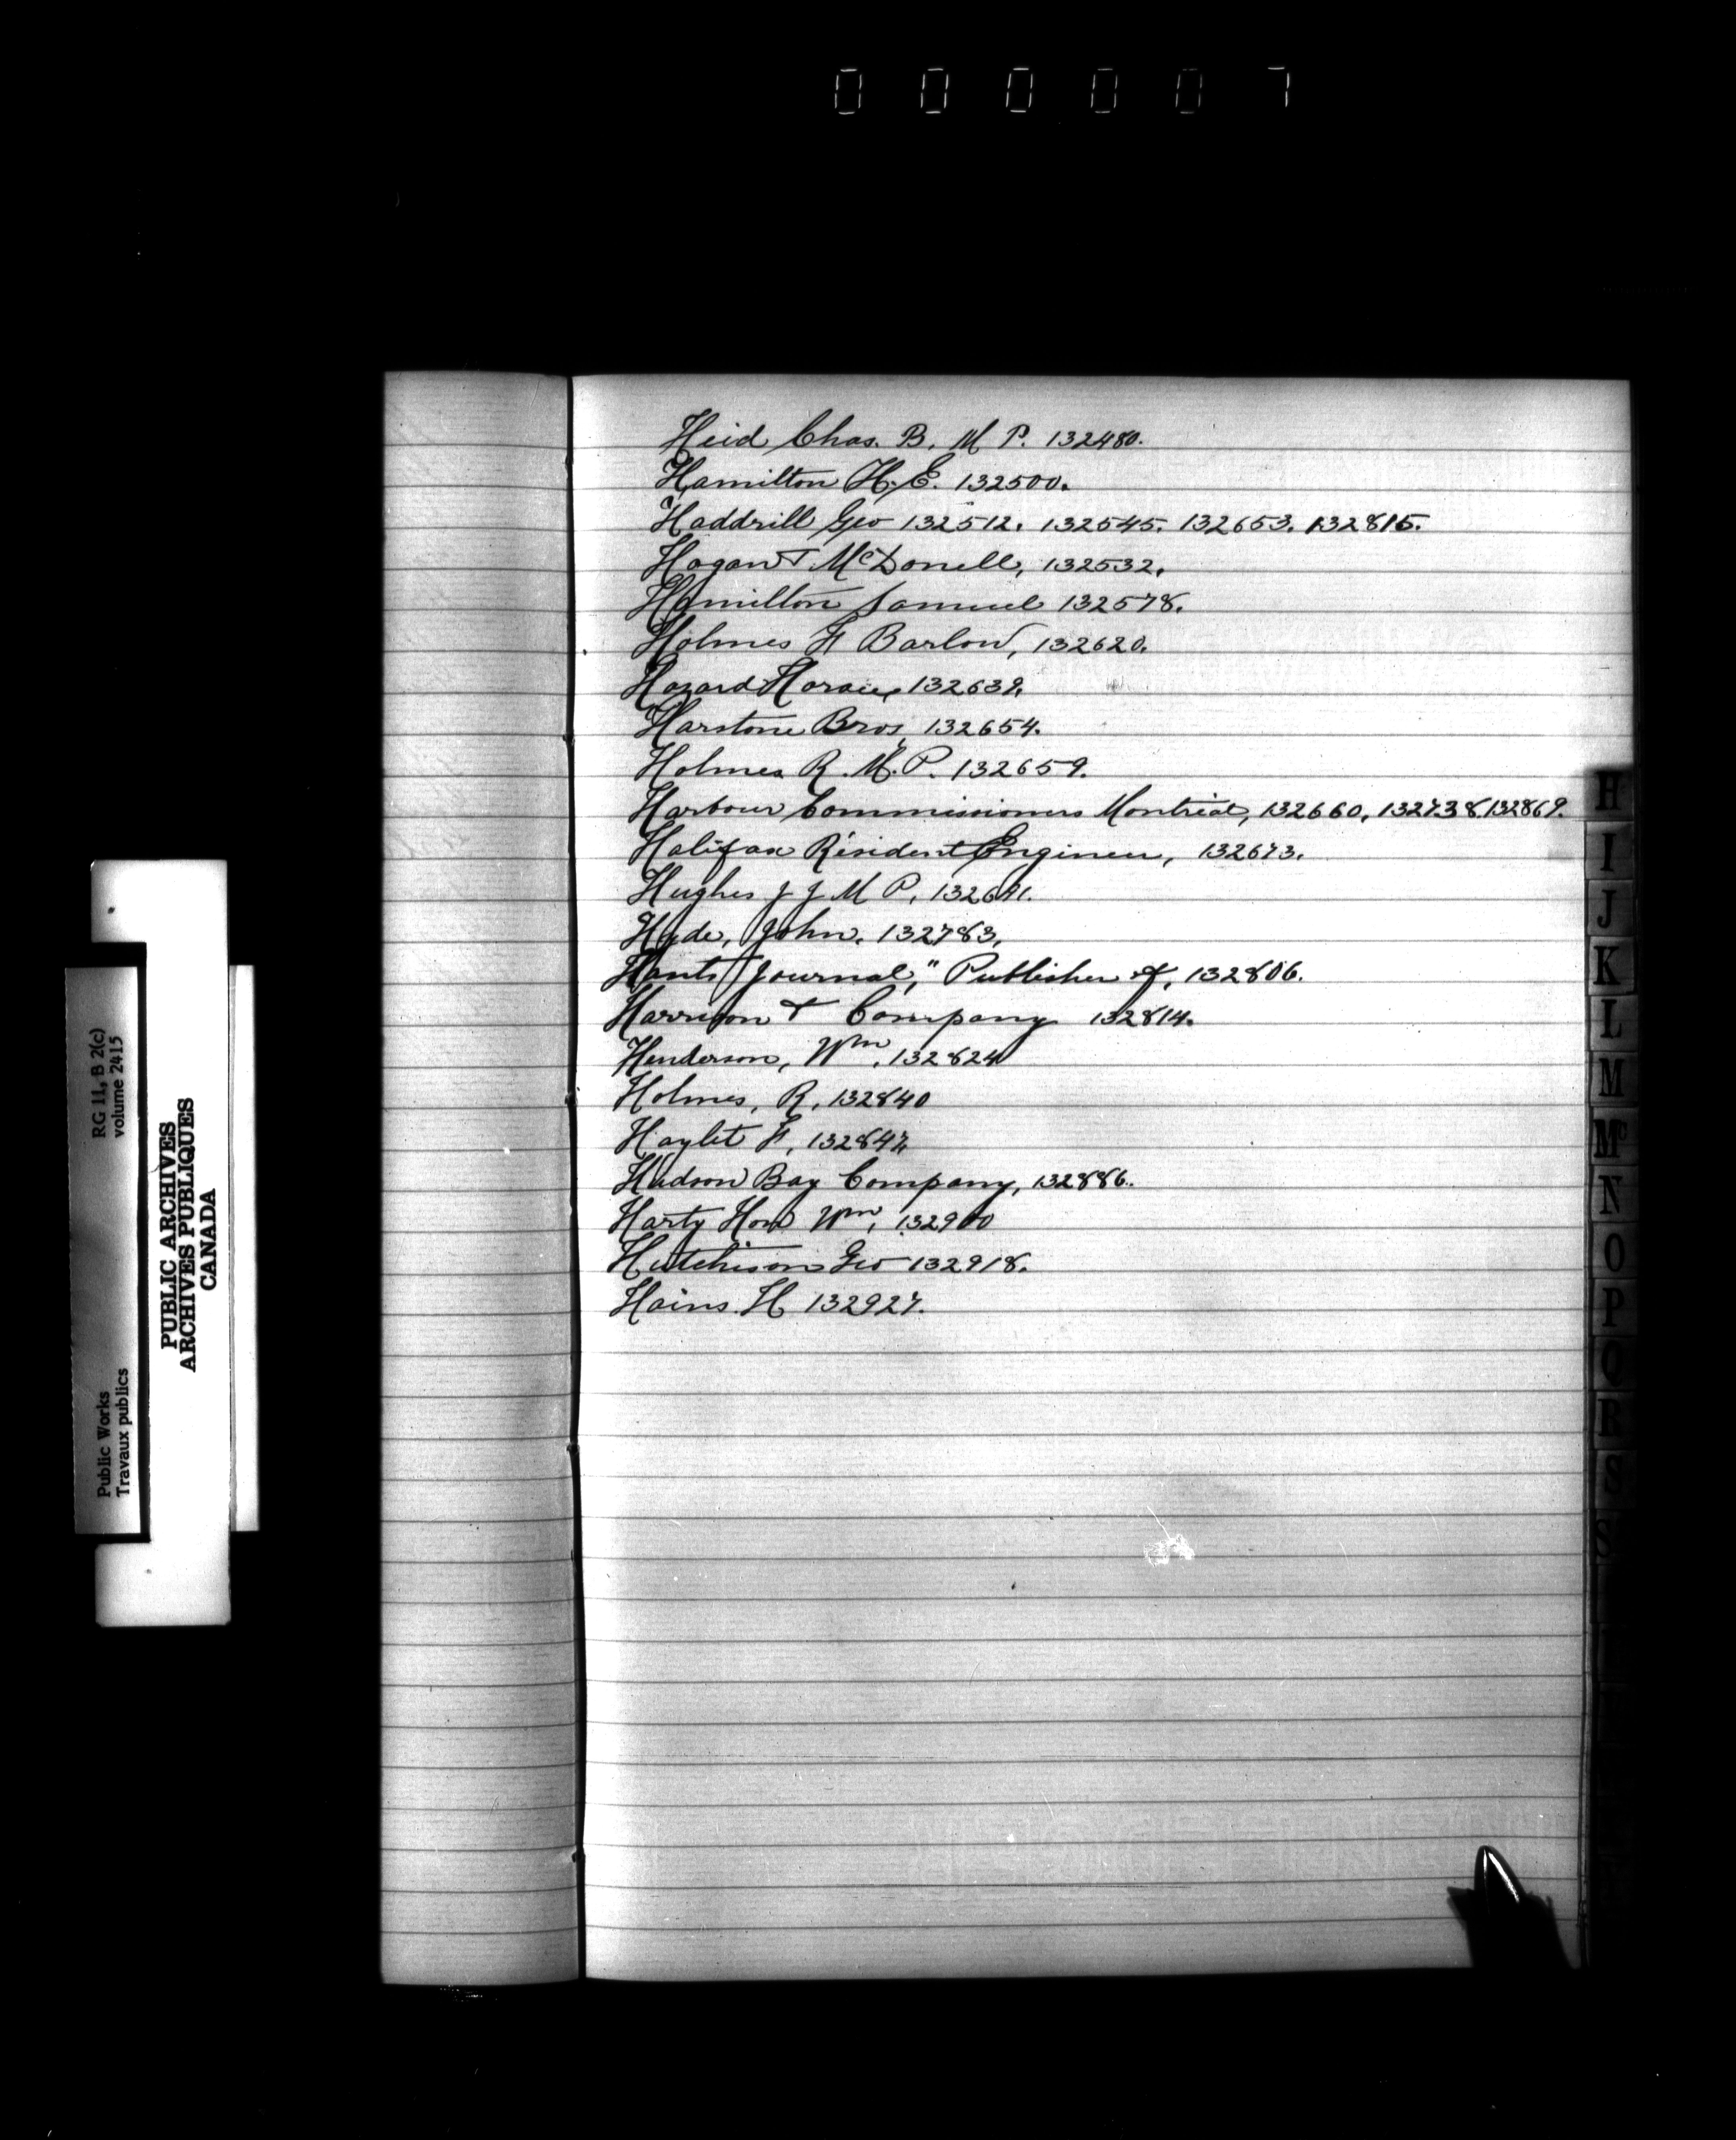 000007
Heid Chas. B. M P. 132480.
Hamilton H. E. 132500.
Haddrill Geo 132512. 132545. 132653. 132815.
Hogan & McDonell, 132532.
Hamilton Samuel 132578.
Holmes H Barlow, 132620.
Hazard Horace, 132639.
Harstone Bros, 132654.
Holmes R. M. P. 132659.
Harbour Commissioners Montreal, 132660, 132738. 132869.
Halifax Resident Engineer, 132673.
Hughes J J M P, 132691.
Hyde, John, 132783,
Hants Journal," Publisher of, 132806.
Harrison & Company 132814.
Henderson, Wm, 132824
Holmes, R, 132840
Haylet F, 132847,
Hudson Bay Company, 132886.
Harty Hon Wm, 132900
Hutchison Geo 132918.
Hains. H 132927.
H
I
J
K
L
M
Mc
N
O
P
Q
R
S
RG 11, B 2(c)
volume 2415
Public Works
Travaux publics
PUBLIC ARCHIVES
ARCHIVES PUBLIQUES
CANADA